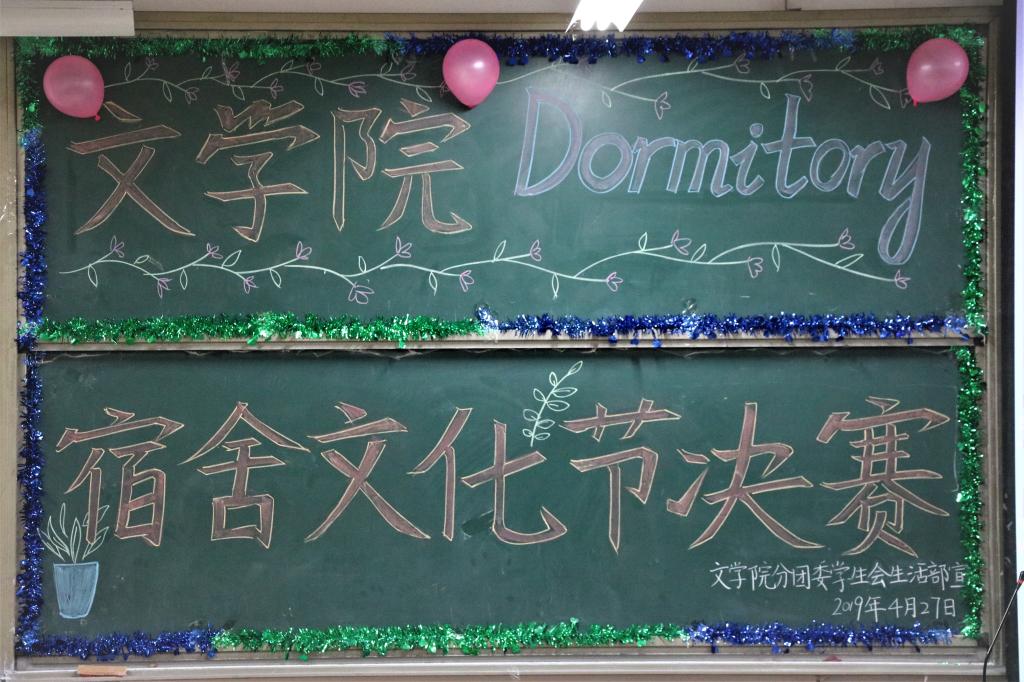 文学院 Dormitory
宿舍文化节决赛
文学院分团委学生会生活部宣
2019年4月27日